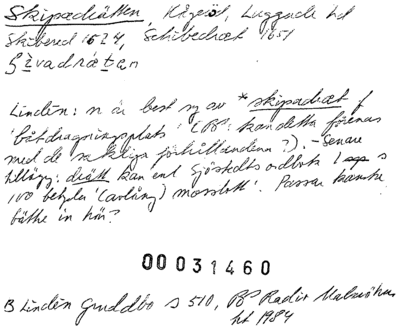 Skipadrätten, Kågeröd, Luggude hd
Skibered 1624, Schibedræt 1651
Lindén: n är best sg av *skipadræt f
'båtdragningsplats' (BP: kan detta förenas
med de sakliga förhållandena?). – Senare
tillägg: drätt kan enl Sjöstedts ordbok 1 sp s
100 betyda '(avlång) mosslott'. Passar kanske
bättre in här?
00031460
B Lindén Gruddbo s 510, BP Radiv Malmöhus
ht 1984